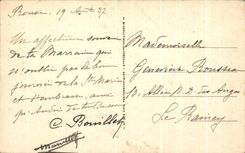 Rouen, 19 Août 37
Un affectueux souvenir
de ta Marraine qui
n'oublie pas le bon
journée de la Ste Marie
et t'embrasse ainsi
qu'André de tout coeur
C Bouillet
Mademoiselle
Geneviève Rousseau
Allée N.D. des Anges
Le Raincy